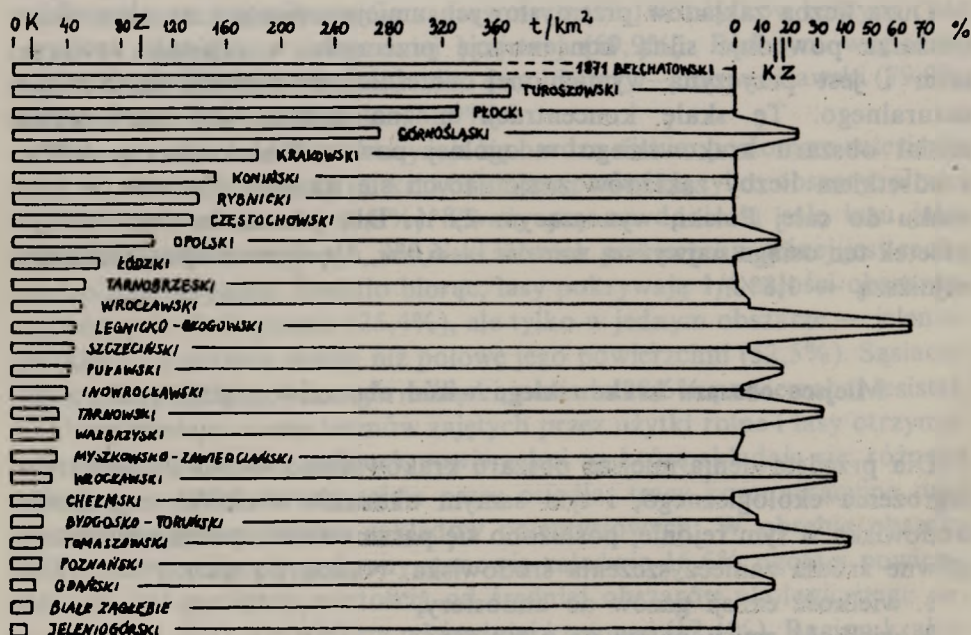 0 K 40 80 Z 120 160 200 240 280 320 360 t/km² 0 10 20 30 40 50 60 70 %
K Z
1871 BEŁCHATOWSKI
TUROSZOWSKI
PŁOCKI
GÓRNOŚLĄSKI
KRAKOWSKI
KONIŃSKI
RYBNICKI
CZĘSTOCHOWSKI
OPOLSKI
ŁÓDZKI
TARNOBRZESKI
WROCŁAWSKI
LEGNICKO-GŁOGOWSKI
SZCZECIŃSKI
PUŁAWSKI
INOWROCŁAWSKI
TARNOWSKI
WAŁBRZYSKI
MYSZKOWSKO-ZAWIERCIAŃSKI
WŁOCŁAWSKI
CHEŁMSKI
BYDGOSKO-TORUŃSKI
TOMASZOWSKI
POZNAŃSKI
GDAŃSKI
BIAŁE ZAGŁĘBIE
JELENIOGÓRSKI